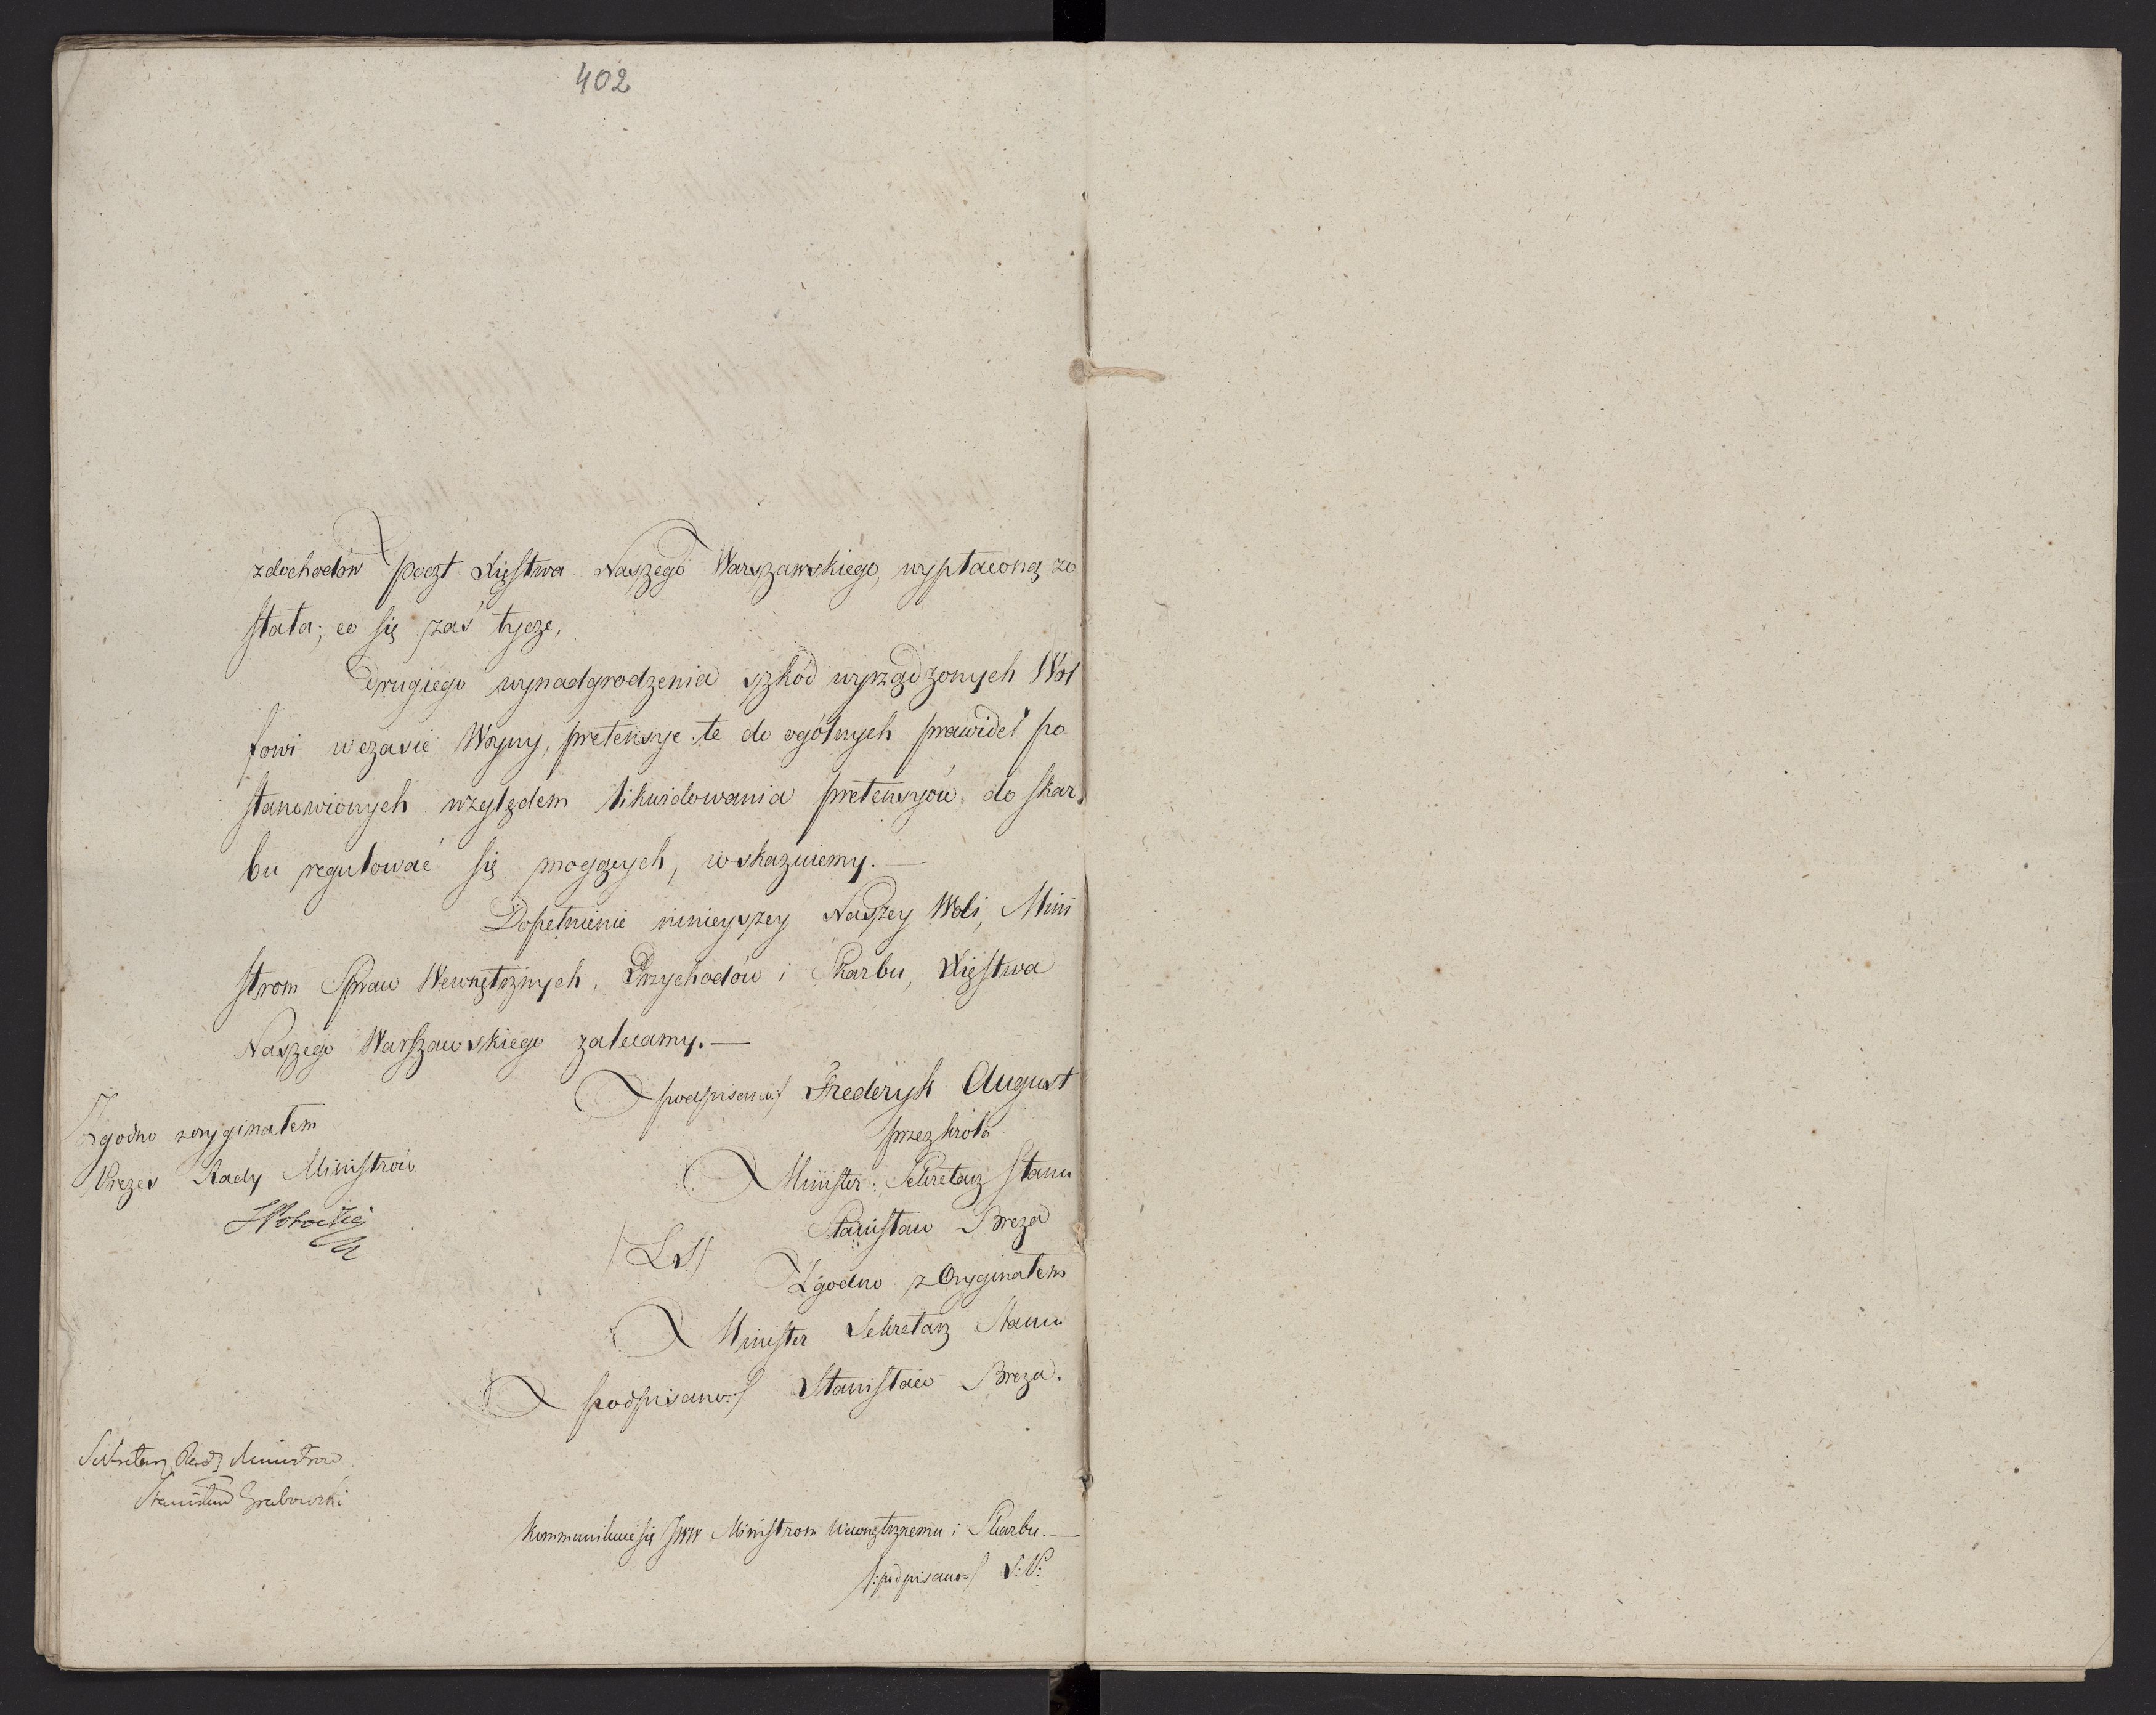 402
z dochodów poczt Xięstwa Naszego Warszawskiego, wypłaconą zo
stała; co się zaś tycze,
drugiego wynadgrodzenia szkód wyrządzonych Wol
fowi w czasie Woyny, pretensye te do ogólnych prawideł po
stanowionych względem likwidowania pretensyów do skar
bu regulować się mogących, wskazuiemy. —
Dopełnienie ninieyszey Naszey Woli, Mini
strom Spraw Wewnętrznych, Przychodów i Skarbu, Xięstwa
Naszego Warszawskiego zalecamy. —
podpisano:/ Frederyk August
przez króla
Minister Sekretarz Stanu
Stanisław Breza
/LS/
Zgodno z Oryginałem
Minister Sekretarz Stanu
podpisano:/ Stanisław Breza.
Zgodno z oryginałem
Prezes Rady Ministrów
SPotocki
Sekretarz Rady Ministrow
Stanisław Grabowski
Kommunikuie się JWW Ministrom Wewnętrznemu i Skarbu. —
/:podpisano:/ S: P: